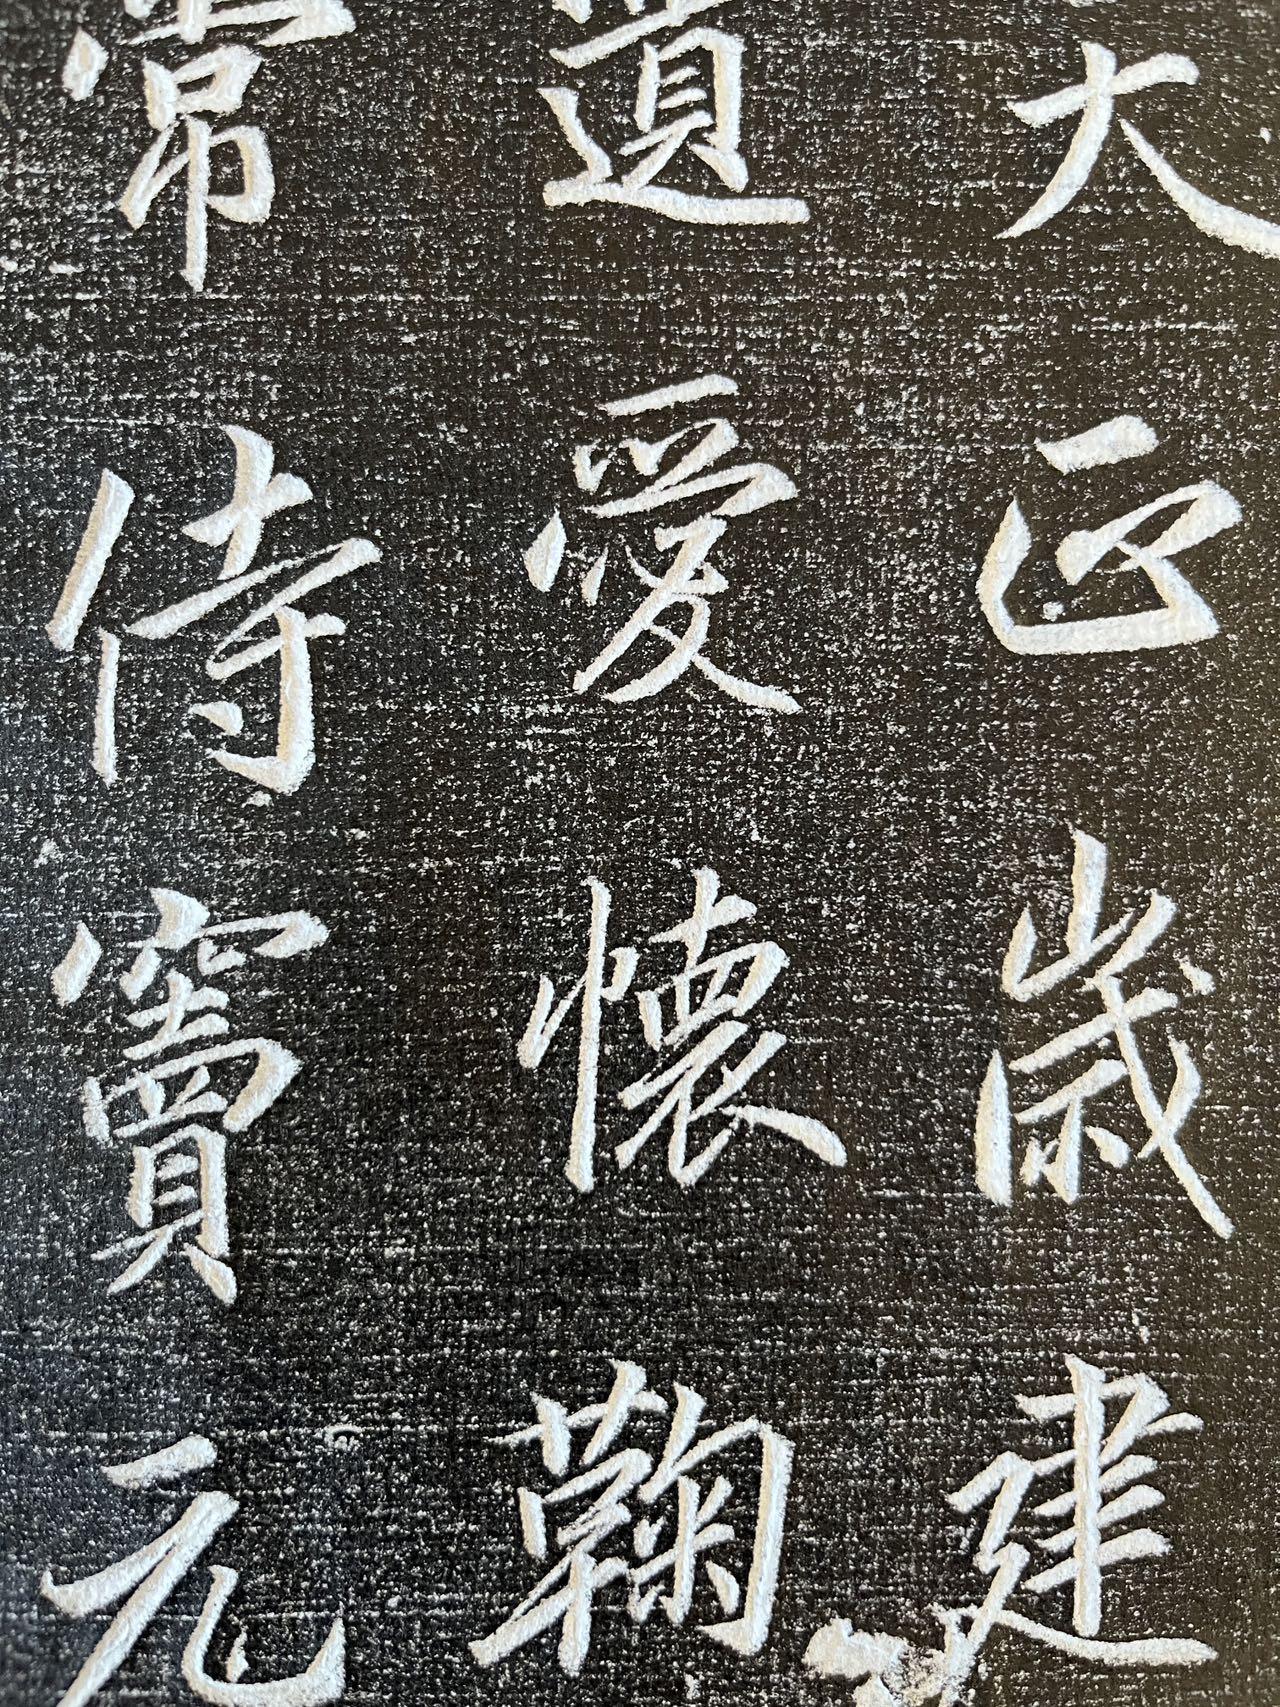 大正歲建
遺愛懷鞠
常侍竇元